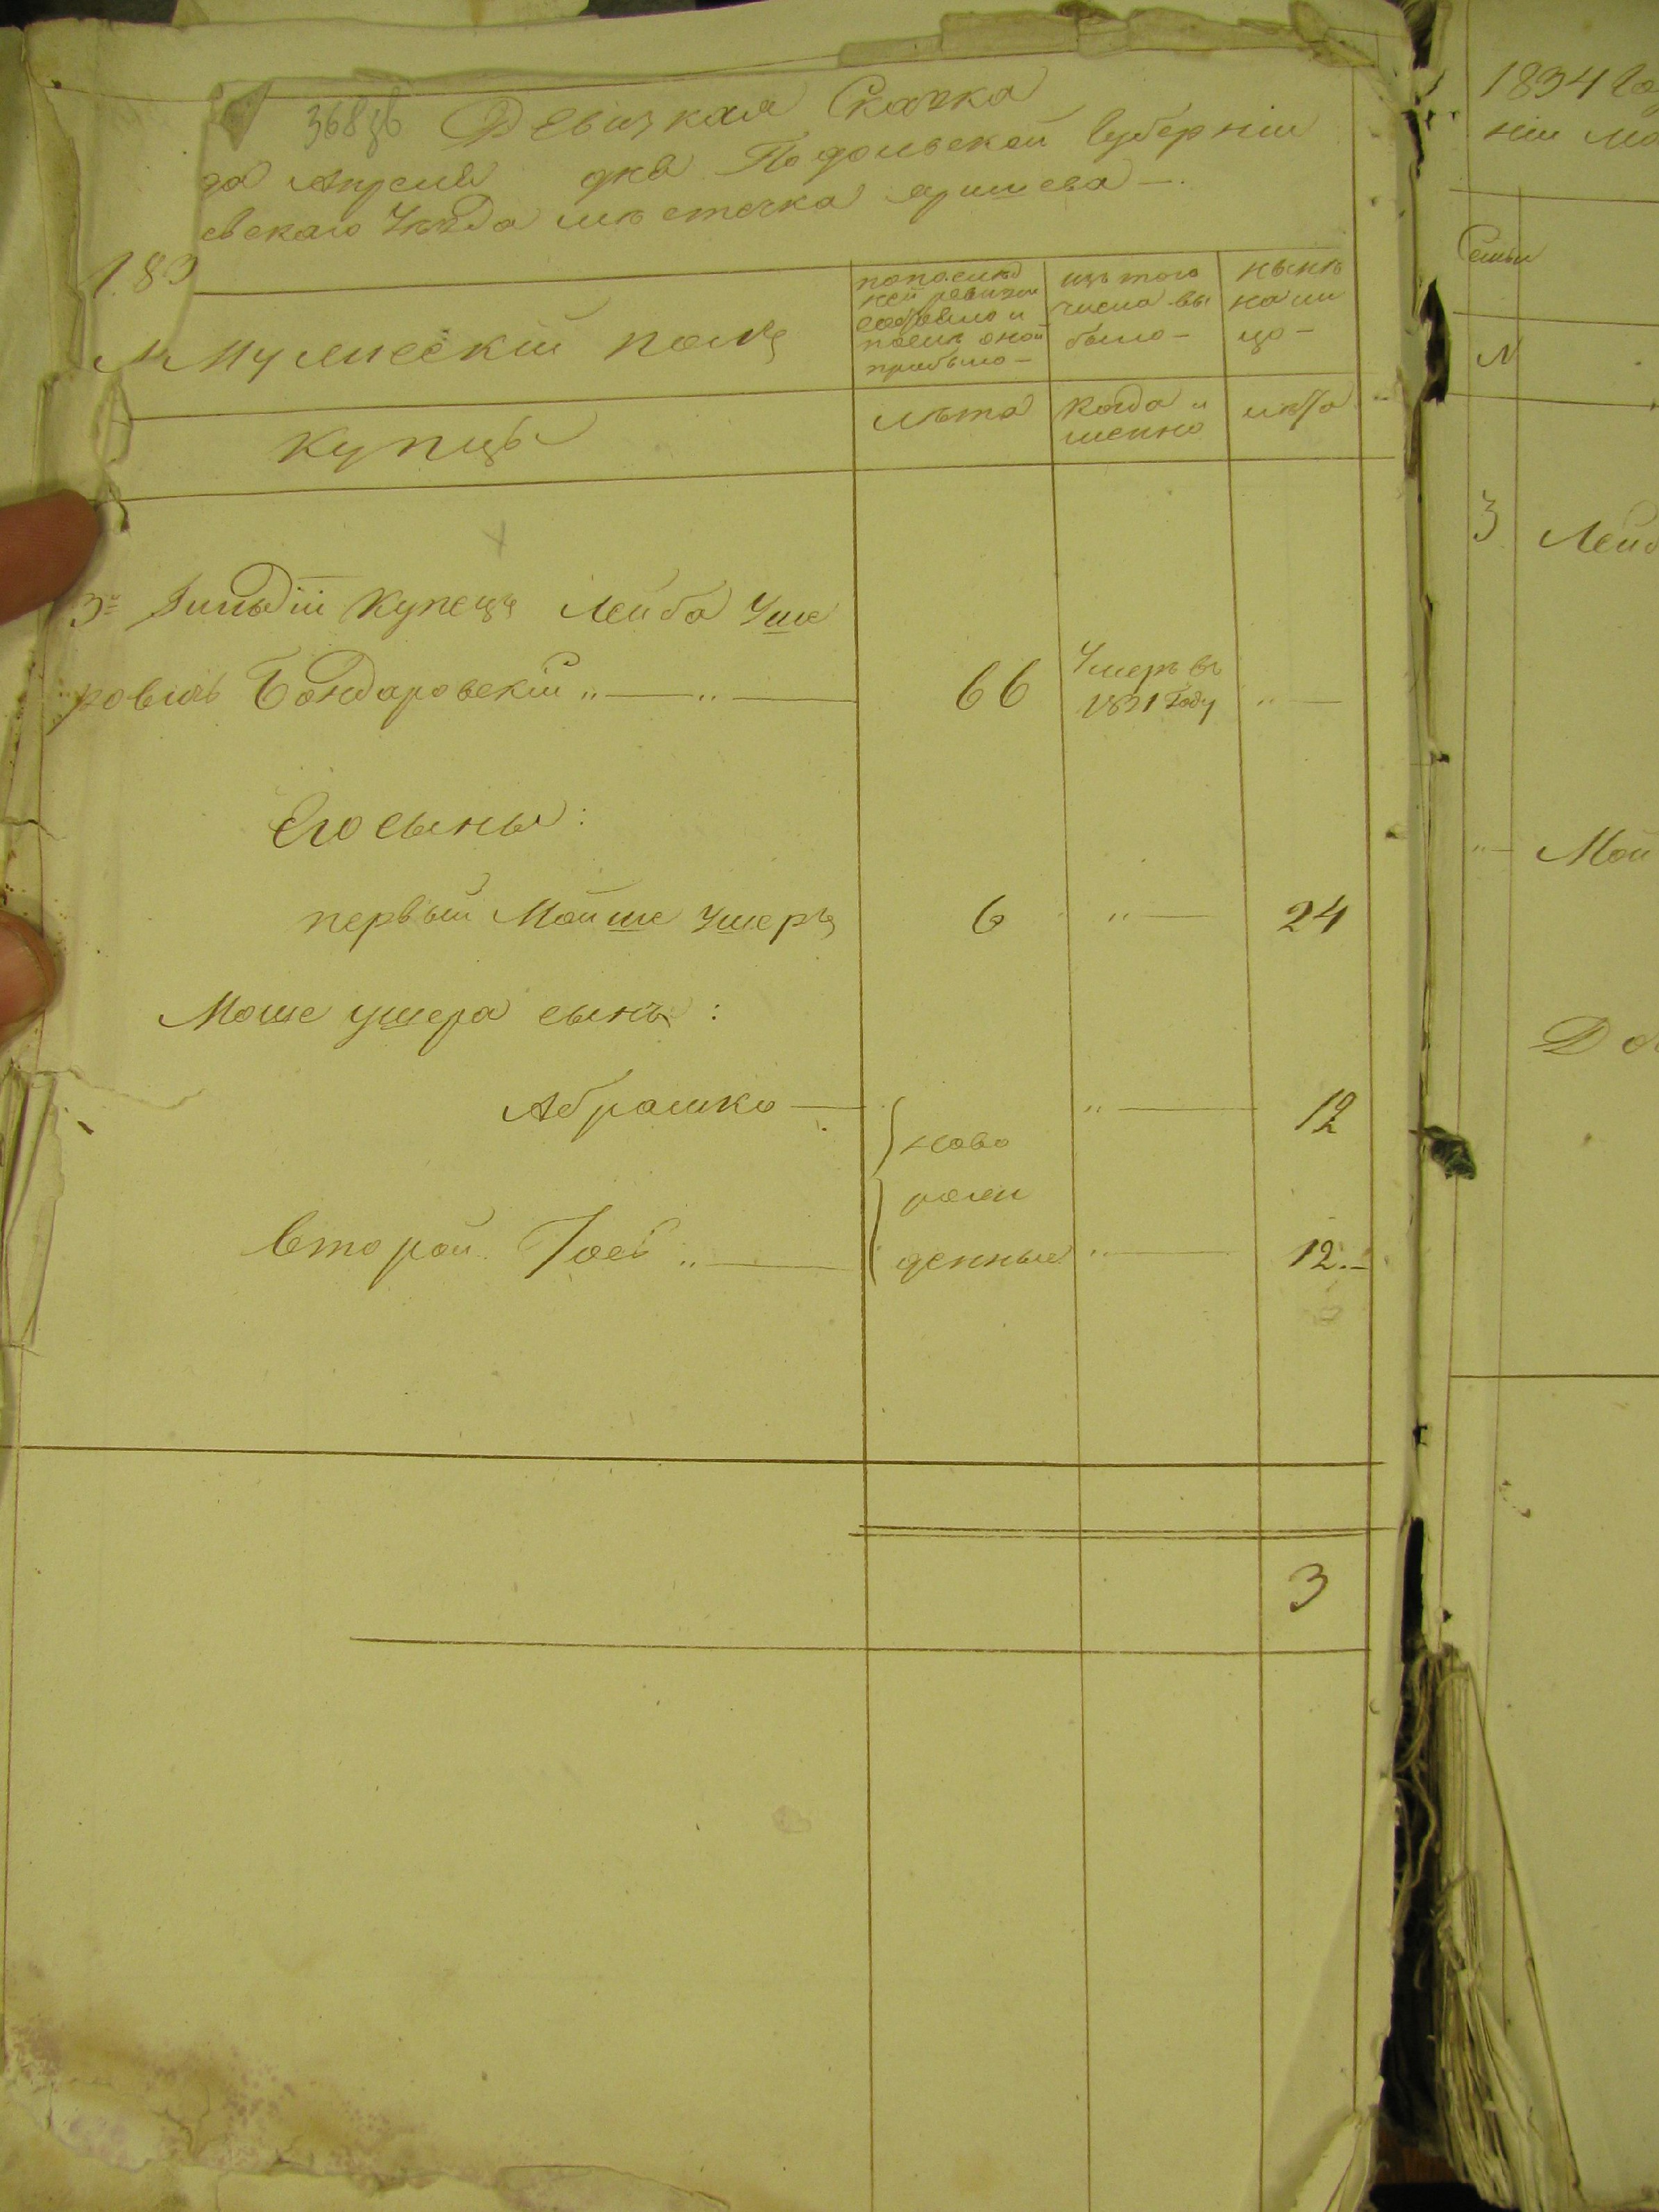 Ревизкая Сказка
да Апреля дня Подольской Губерніи
евскаго Уѣзда мѣстечка Яришева —.
183
№ Мужескій полъ
по последней ревизіи состояло и послѣ оной прибыло —
изъ того числа выбыло —
нынѣ на лицо —
Купцы
лѣта
Когда именно
лѣта
3й Гильдіи Купецъ Лейба Уше
ровичь Бондаровскій „ — „ — 66 Умеръ въ 1831 Году „ —
Его сыны:
первый Мойше Ушеръ 6 „ — 24
Моше Ушера сынъ:
Абрашко — ново „ — 12
рож
Второй Іосъ „ — денные „ — 12. —
3
1834 Го
ніи мѣ
Семьи
№
3 Лейб
„ — Мой